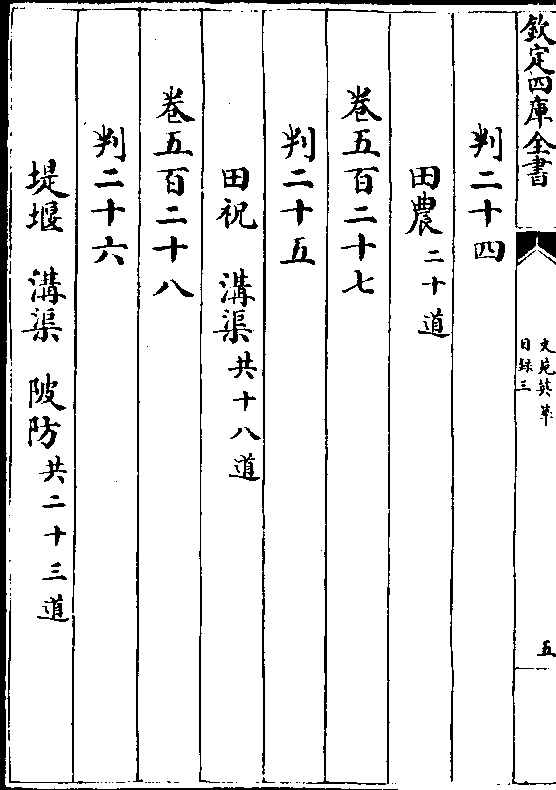 欽定四庫全書
文苑英華
目録三
五
判二十四
田農二十道
卷五百二十七
判二十五
田祝 溝渠共十八道
卷五百二十八
判二十六
堤堰 溝渠 陂防共二十三道